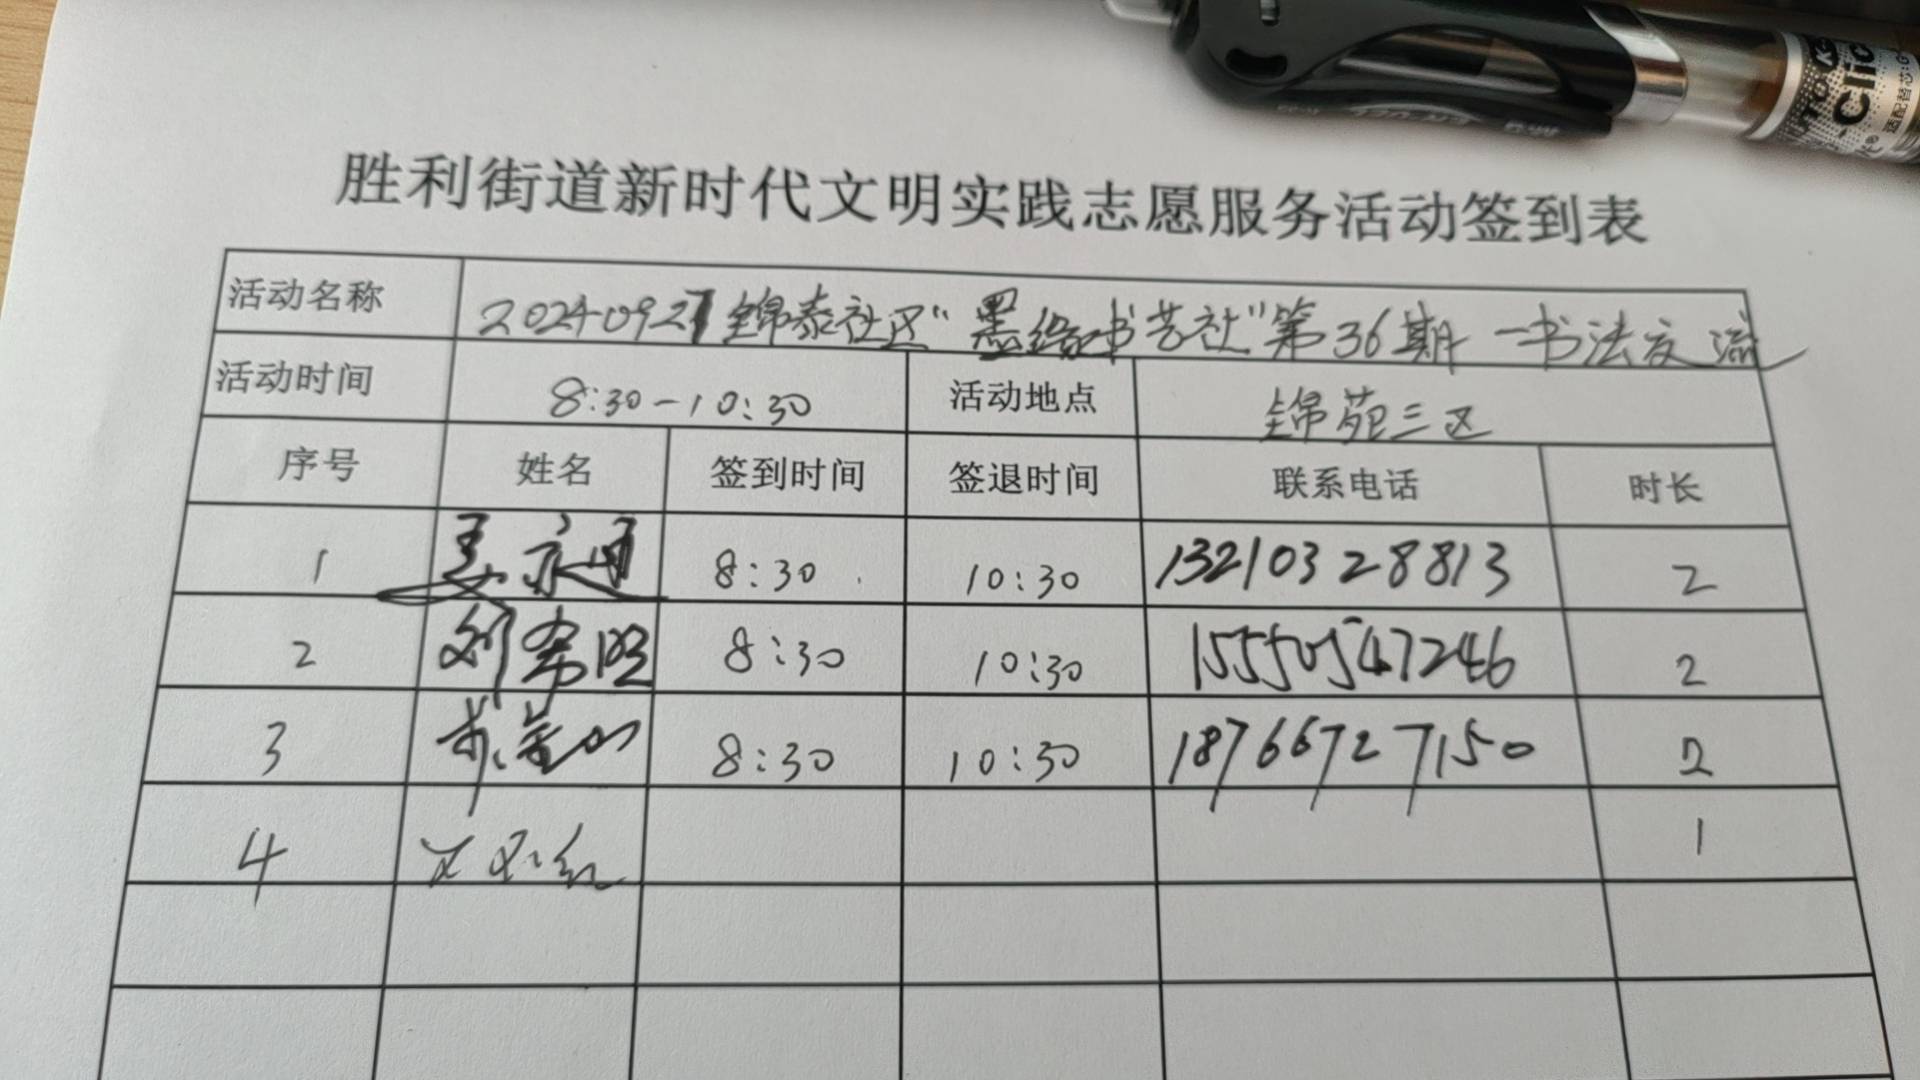 胜利街道新时代文明实践志愿服务活动签到表
活动名称 20240927锦泰社区“墨缘书艺社”第36期-书法交流
活动时间 8:30-10:30 活动地点 锦苑三区
序号 姓名 签到时间 签退时间 联系电话 时长
1 姜京通 8:30 10:30 13210328813 2
2 刘希明 8:30 10:30 15550547246 2
3 8:30 10:30 18766727150 2
4 1